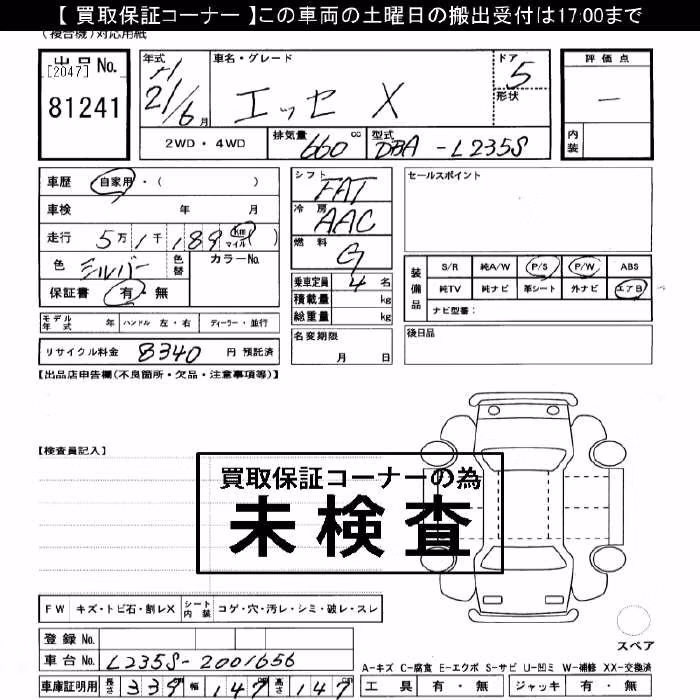 【 買取保証コーナー 】この車両の土曜日の搬出受付は17:00まで
(複合機)対応用紙
出品No.
[2047]
81241
年式
H
21/6月
車名・グレード
エッセ X
ドア
5
形状
2WD・4WD
排気量 660 cc
型式 DBA-L235S
評価点
—
内装
車歴 自家用・( )
車検 年 月
走行 5万 1千 189 km マイル ( )
色 シルバー 色替 カラーNo.
保証書 有・無
シフト FAT
冷房 AAC
燃料 G
乗車定員 4 名
積載量 kg
総重量 kg
名変期限
月 日
セールスポイント
装備品
S/R 純A/W P/S P/W ABS
純TV 純ナビ 革シート 外ナビ エアB
ナビ型番:
後日品
モデル年式 年 ハンドル 左・右 ディーラー・並行
リサイクル料金 8340 円 預託済
【出品店申告欄(不良箇所・欠品・注意事項等)】
【検査員記入】
買取保証コーナーの為
未検査
FW キズ・トビ石・割レX シート内装 コゲ・穴・汚レ・シミ・破レ・スレ
登録 No.
車台 No. L235S-2001656
車庫証明用 長さ 339 幅 147 高さ 147
スペア
A-キズ C-腐食 E-エクボ S-サビ U-凹ミ W-補修 XX-交換済
工具 有・無 ジャッキ 有・無